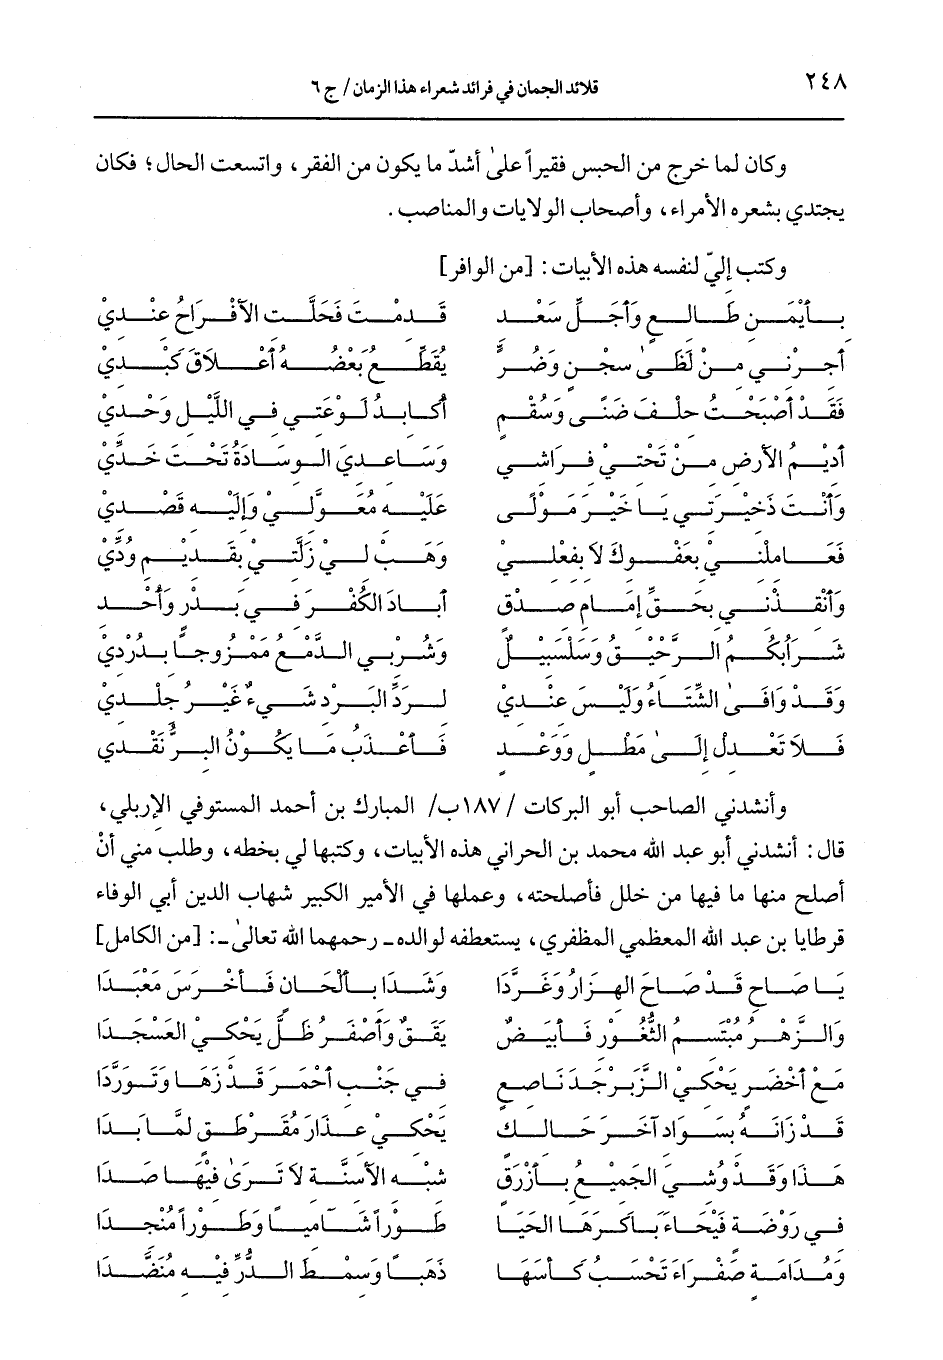 ٢٤٨
قلائد الجمان في فرائد شعراء هذا الزمان / ج ٦
وكان لما خرج من الحبس فقيراً على أشدّ ما يكون من الفقر، واتسعت الحال؛ فكان
يجتدي بشعره الأمراء، وأصحاب الولايات والمناصب.
وكتب إليّ لنفسه هذه الأبيات: [من الوافر]
بأَيْمَنِ طَالعٍ وَأَجَلِّ سَعْدِ قَدِمْتَ فَحَلَّتِ الأَفْرَاحُ عِنْدِيْ
أَجِرْنِي مِنْ لَظَىٰ سِجْنٍ وَضُرٍّ يُقَطِّعُ بَعْضُهُ أَعْلاَقَ كَبْدِيْ
فَقَدْ أَصْبَحْتُ حِلْفَ ضَنًى وَسُقْمٍ أُكَابِدُ لَوْعَتِي فِي اللَّيْلِ وَحْدِيْ
أَدِيْمُ الأَرْضِ مِنْ تَحْتِي فِرَاشِي وَسَاعِدِيَ الوِسَادَةُ تَحْتَ خَدِّيْ
وَأَنْتَ ذَخِيْرَتِي يَا خَيْرَ مَوْلًى عَلَيْهِ مُعَوَّلِيْ وَإِلَيْهِ قَصْدِيْ
فَعَامِلْنِيْ بِعَفْوِكَ لاَ بِفِعْلِيْ وَهَبْ لِيْ زَلَّتِيْ بِقَدِيْمِ وُدِّيْ
وَأَنْقِذْنِي بِحَقِّ إِمَامِ صِدْقٍ أَبَادَ الكُفْرَ فِي بَدْرٍ وَأُحْدِ
شَرَابُكُمُ الرَّحِيْقُ وَسَلْسَبِيْلٌ وَشُرْبِي الدَّمْعُ مَمْزُوجاً بِدُرْدِيْ
وَقَدْ وَافَىٰ الشِّتَاءُ وَلَيْسَ عِنْدِيْ لِرَدِّ البَرْدِ شَيْءٌ غَيْرُ جِلْدِيْ
فَلاَ تَعْدِلْ إِلَىٰ مَطْلٍ وَوَعْدٍ فَأَعْذَبُ مَا يَكُوْنُ البِرُّ نَقْدِيْ
وأنشدني الصاحب أبو البركات /١٨٧ب/ المبارك بن أحمد المستوفي الإربلي،
قال: أنشدني أبو عبد الله محمد بن الحراني هذه الأبيات، وكتبها لي بخطه، وطلب مني أنْ
أصلح منها ما فيها من خلل فأصلحته، وعملها في الأمير الكبير شهاب الدين أبي الوفاء
قرطايا بن عبد الله المعظمي المظفري، يستعطفه لوالده ـ رحمهما الله تعالىٰ ـ: [من الكامل]
يَا صَاحِ قَدْ صَاحَ الهِزَارُ وَغَرَّدَا وَشَدَا بِأَلْحَانٍ فَأَخْرَسَ مَعْبَدَا
وَالزَّهْرُ مُبْتَسِمُ الثُّغُوْرِ فَأَبْيَضٌ يَقَقٌ وَأَصْفَرُ ظَلَّ يَحْكِيْ العَسْجَدَا
مَعْ أَخْضَرٍ يَحْكِيْ الزَّبَرْجَدَ نَاصِعٍ فِي جَنْبِ أَحْمَرَ قَدْ زَهَا وَتَوَرَّدَا
قَدْ زَانَهُ بِسَوَادِ آخَرَ حَالِكٍ يَحْكِيْ عِذَارَ مُقَرْطَقٍ لَمَّا بَدَا
هَذَا وَقَدْ وُشِيَ الجَمِيْعُ بِأَزْرَقٍ شِبْهِ الأَسِنَّةِ لاَ تَرَىٰ فِيْهَا صَدَا
فِي رَوْضَةٍ فَيْحَاءَ بَاكَرَهَا الحَيَا طَوْراً شَآمِيًا وَطَوْراً مُنْجِدَا
وَمُدَامَةٍ صَفْرَاءَ تَحْسَبُ كَأْسَهَا ذَهَبًا وَسِمْطَ الدُّرِّ فِيْهِ مُنَضَّدَا